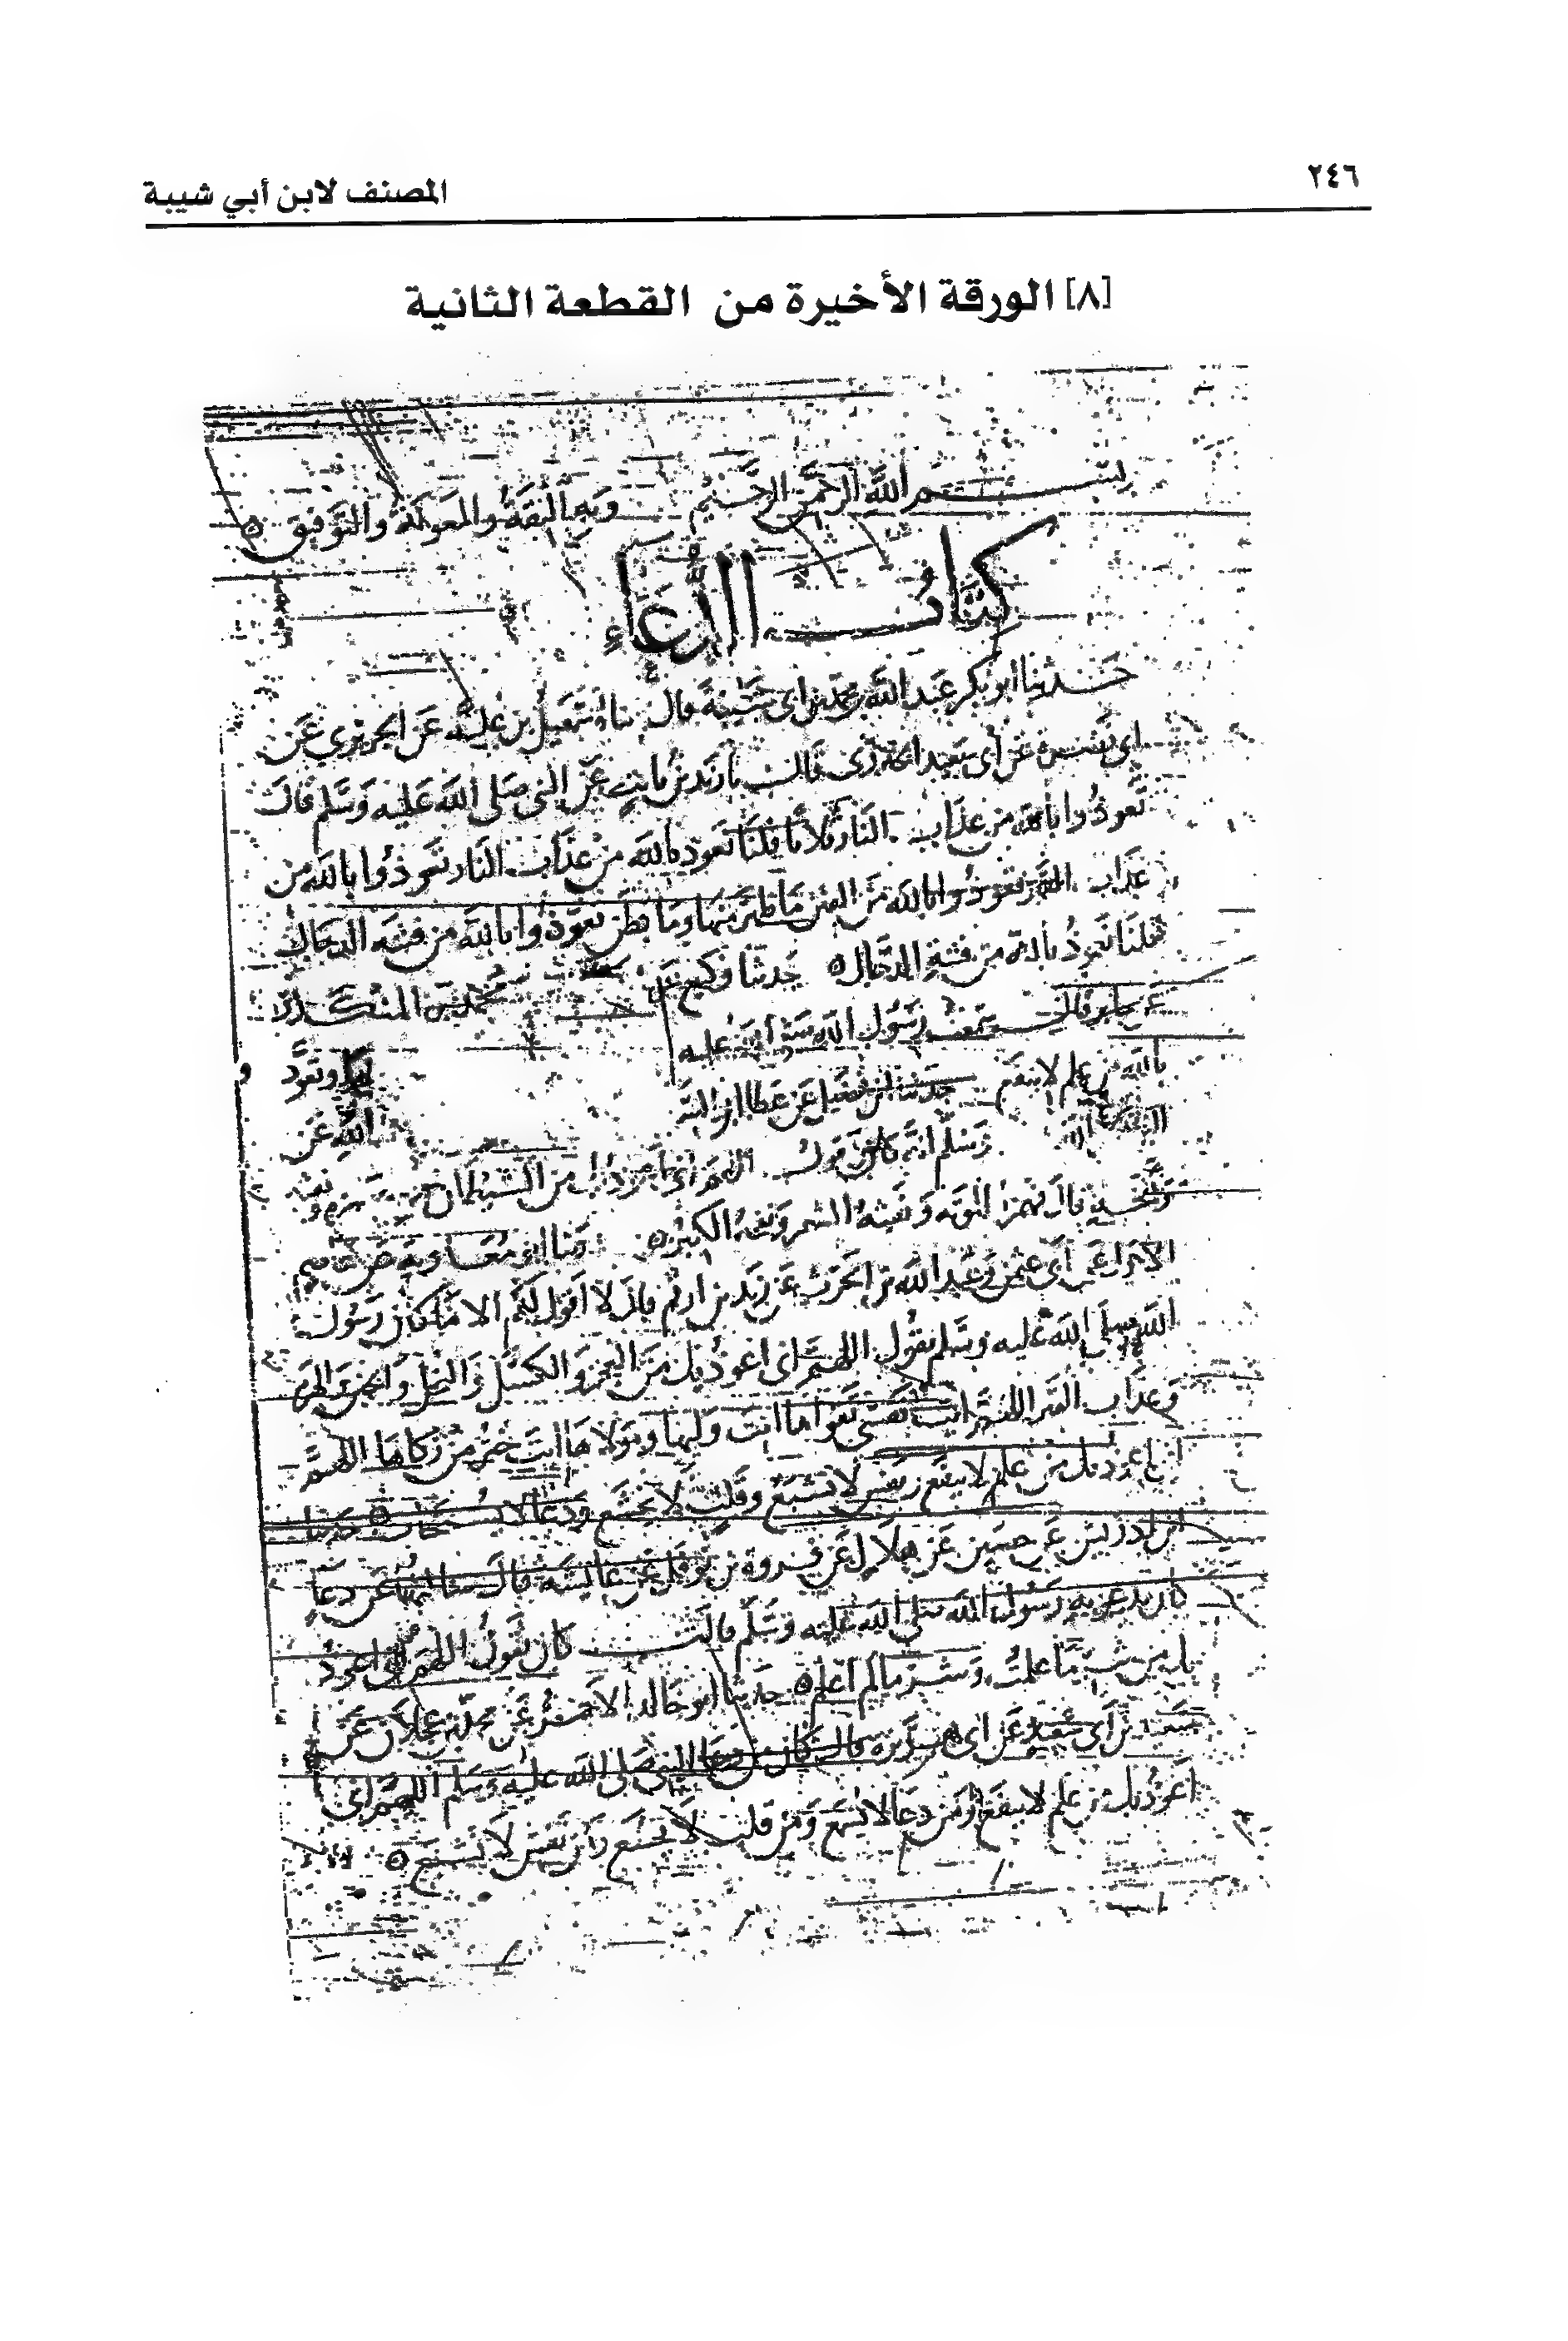 ٢٤٦
المصنف لابن أبي شيبة
[٨] الورقة الأخيرة من القطعة الثانية
بسم الله الرحمن الرحيم وبه الثقة والمعونة والتوفيق
كتاب الدعاء
حدثنا ابو بكر عبد الله بن محمد بن ابي شيبة قال اسمعيل بن علية عن الجريري عن
ابي نضرة عن ابي سعيد الخدري قال زيد بن ثابت عن النبي صلى الله عليه وسلم قال
تعوذوا بالله من عذاب النار ثلاثا قلنا نعوذ بالله من عذاب النار تعوذوا بالله من
عذاب تعوذوا بالله من الفتن ما ظهر منها وما بطن تعوذوا بالله من فتنة الدجال
قلنا نعوذ بالله من فتنة الدجال حدثنا وكيع عن محمد بن المنكدر
عن جابر قال سمعت رسول الله عليه
وتعوذ
بالله من علم لا ينفع حدثنا ابن فضيل عن عطا ابن
الله عن
وسلم انه كان يقول اللهم اني من الشيطان
قال همزه الموتة ونفثه الشعر ونفخه الكبر ابو معاوية عن عاصم
الاحول عن ابي عثمن وعبد الله بن الحرث عن زيد بن ارقم قال لا اقول لكم الا ما كان رسول
الله صلى الله عليه وسلم يقول اللهم اني اعوذ بك من العجز والكسل والبخل والجبن والهرم
وعذاب القبر اللهم ات نفسي تقواها انت وليها ومولاها انت خير من زكاها اللهم
اني اعوذ بك من علم لا ينفع ونفس لا تشبع وقلب لا يخشع ودعا لا يستجاب حدثنا
ابن ادريس عن حصين عن هلال عن فروة بن نوفل عن عايشة قال سالتها عن دعا
كان يدعو به رسول الله صلى الله عليه وسلم قالت كان يقول اللهم اني اعوذ
بك من شر ما علمت وشر ما لم اعلم حدثنا ابو خالد الاحمر عن محمد بن عجلان عن
سعيد بن ابي سعيد عن ابي هريرة قال كان من دعا النبي صلى الله عليه وسلم اللهم اني
اعوذ بك من علم لا ينفع ومن دعا لا يسمع ومن قلب لا يخشع ومن نفس لا تشبع